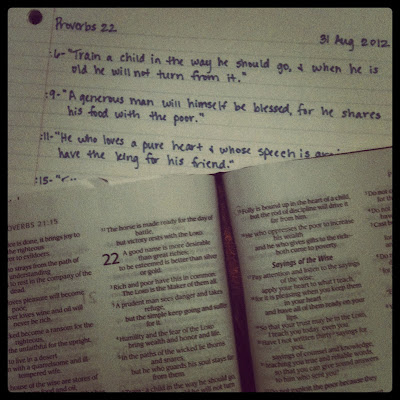 Proverbs 22
31 Aug. 2012
:6-"Train a child in the way he should go, & when he is
old he will not turn from it."
:9-"A generous man will himself be blessed, for he shares
his food with the poor."
:11-"He who loves a pure heart & whose speech is
have the king for his friend."
:15-
PROVERBS 21:15
is done, it brings joy to
the righteous
to evildoers.
strays from the path of
to rest in the company of
the dead.
pleasure will become
poor;
wine and oil will
never be rich.
become a ransom for the
righteous,
the unfaithful for the upright.
to live in a desert
with a quarrelsome and ill-
tempered wife.
house of the wise are stores of
The horse is made ready for the day of
battle,
but victory rests with the LORD.
22 A good name is more desirable
than great riches;
to be esteemed is better than silver
or gold.
Rich and poor have this in common:
The LORD is the Maker of them all.
A prudent man sees danger and takes
refuge,
but the simple keep going and suffer
for it.
Humility and the fear of the LORD
bring wealth and honor and life.
In the paths of the wicked lie thorns
and snares,
but he who guards his soul stays far
from them.
a child in the way he should go,
will not turn
Folly is bound up in the heart of a child,
but the rod of discipline will drive it
far from him.
He who oppresses the poor to increase
his wealth
and he who gives gifts to the rich—
both come to poverty.
Sayings of the Wise
Pay attention and listen to the sayings
of the wise;
apply your heart to what I teach,
for it is pleasing when you keep them
in your heart
and have all of them ready on your
lips.
So that your trust may be in the LORD,
I teach you today, even you.
Have I not written thirty sayings for
you,
sayings of counsel and knowledge,
teaching you true and reliable words,
so that you can give sound answers
to him who sent you?
not exploit the poor because they